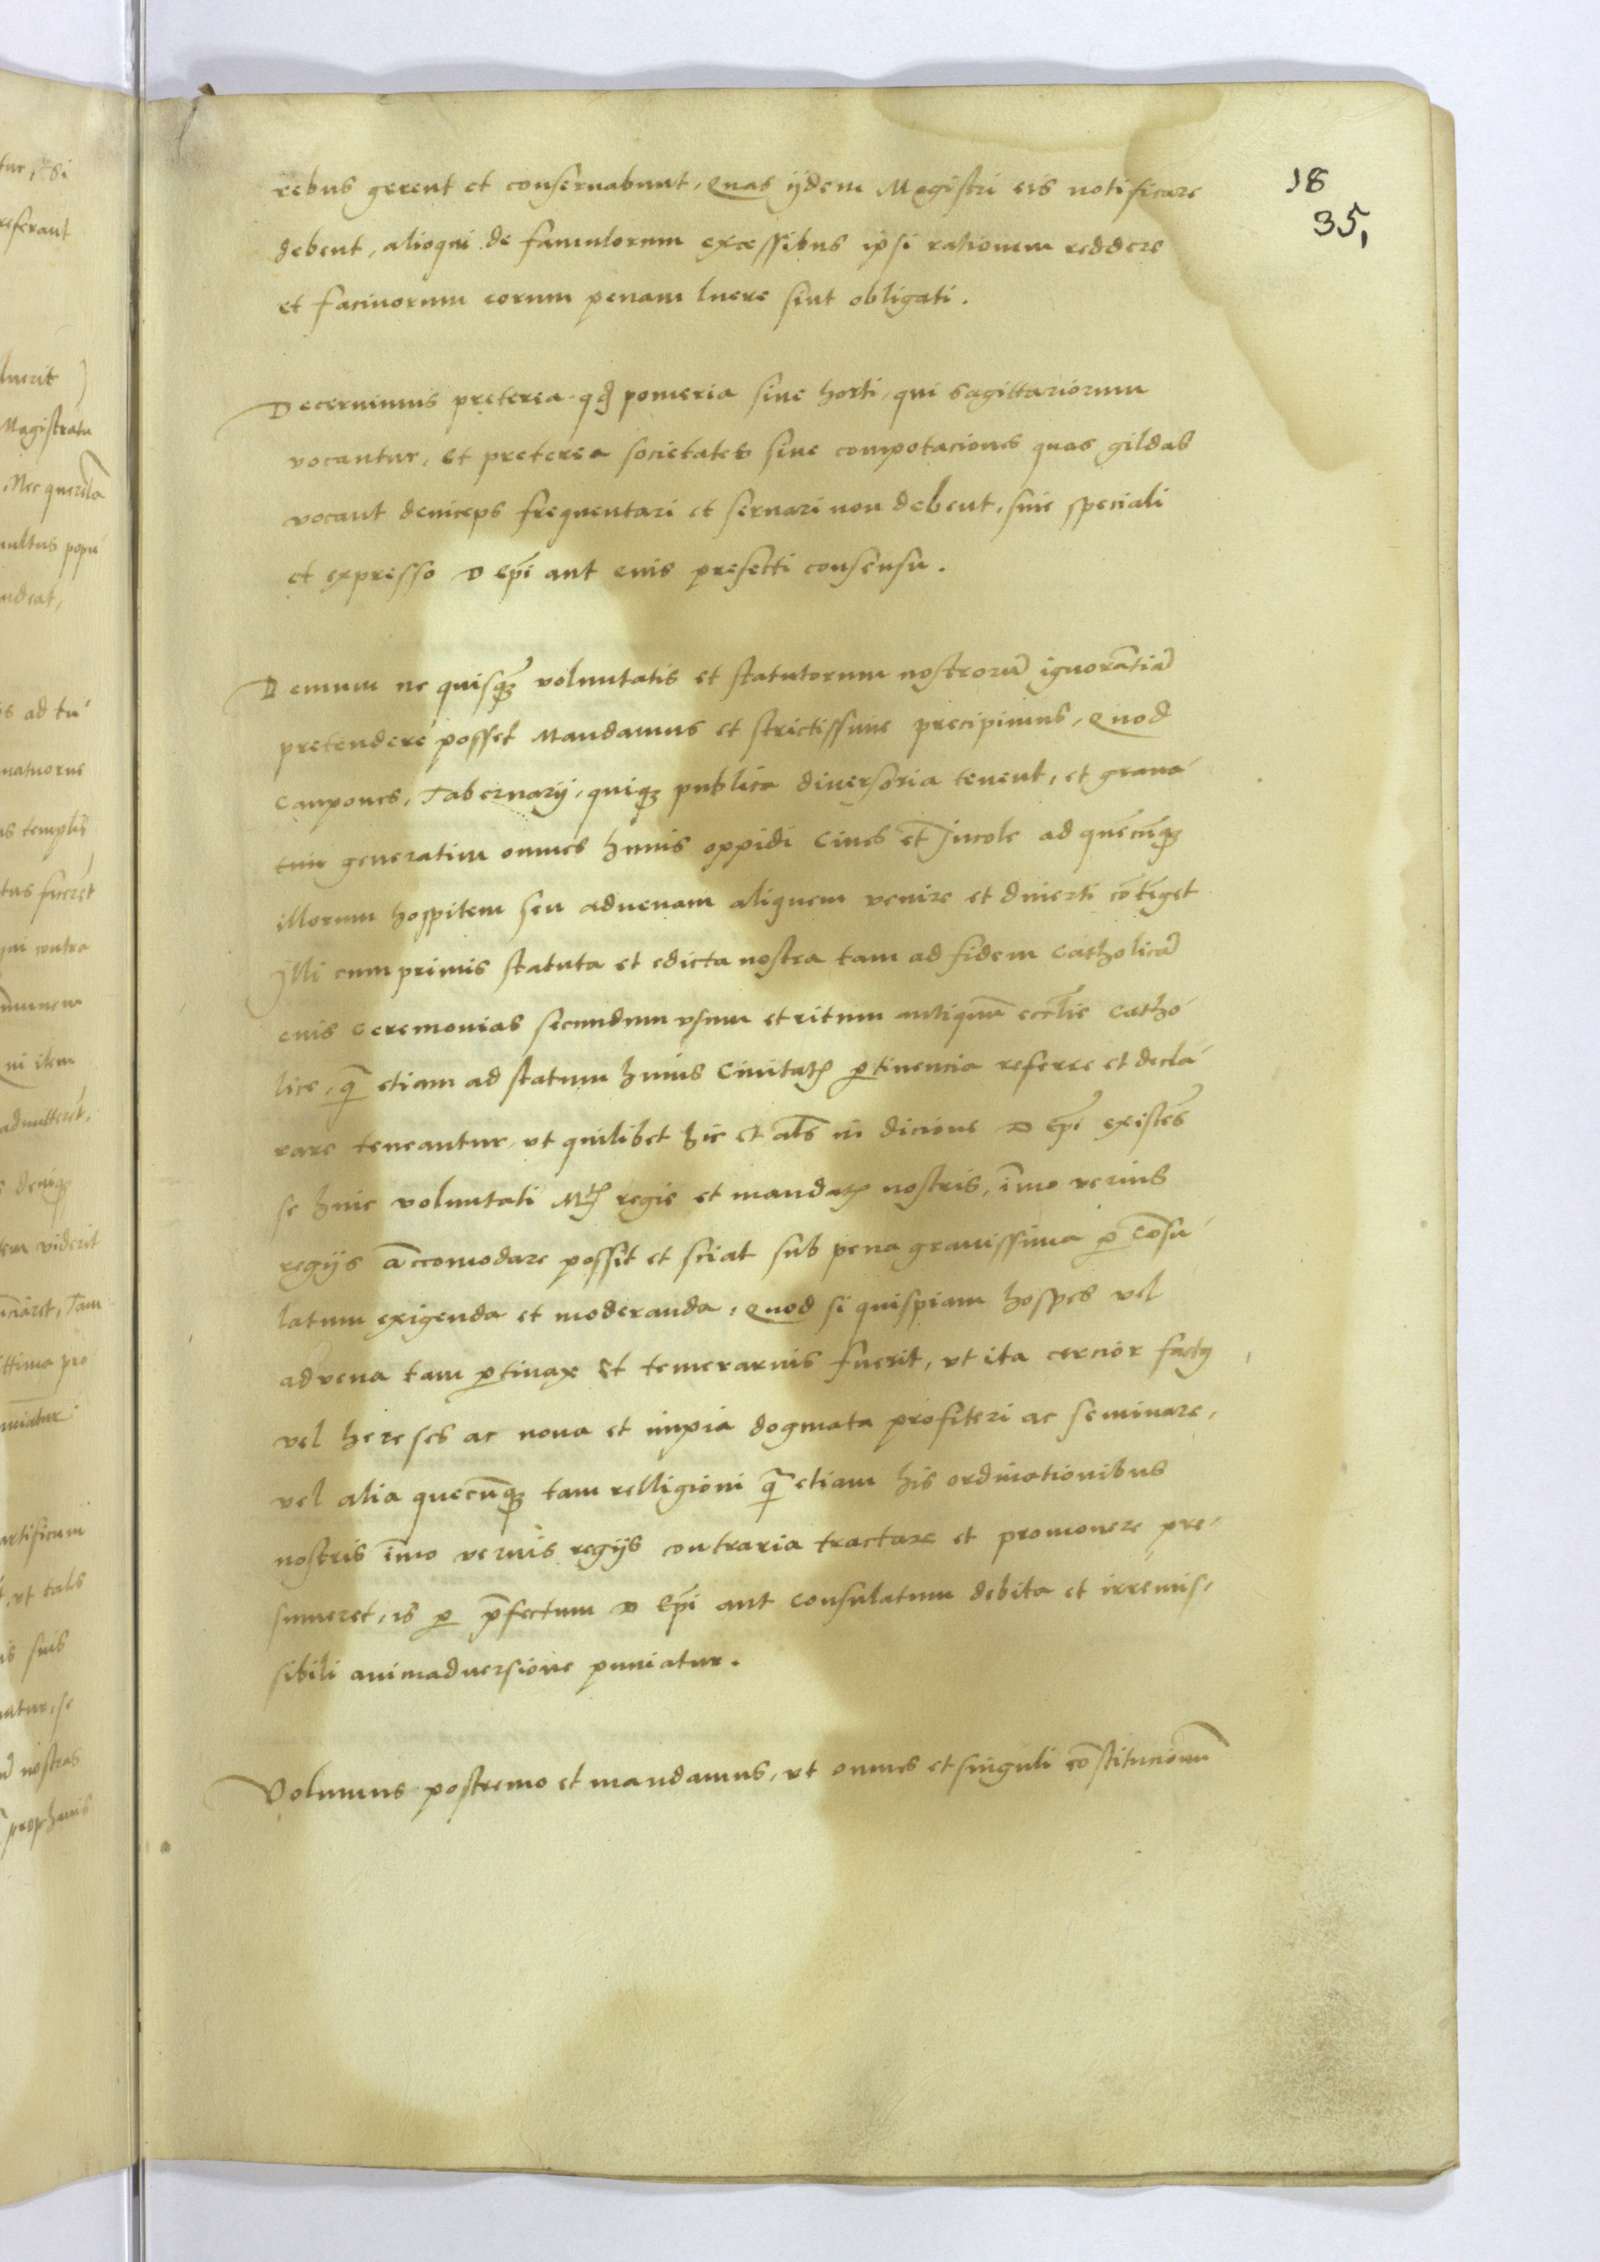 18
35,
rebus gerent et conseruabunt, Quas ijdem Magistri eis notificare
debent, alioqui de famulorum excessibus ipsi rationem reddere
et facinorum eorum penam luere sint obligati.
Decernimus preterea qđ pomeria siue horti, qui sagittariorum
vocantur, et preterea societates siue compotaciones quas gildas
vocant deniceps frequentari et seruari non debent, sine speciali
et expresso D Epī aut euis prefecti consensu.
Demum ne quisq voluntatis et statutorum nostrorū ignorātiā
pretendere posset Mandamus et strictissime precipimus, Quod
Caupones, Tabernarij, quiqꝫ publica diuersoria tenent, et grana-
tim generatim omnes huius oppidi Ciues et Incole ad quēcūqꝫ
illorum hospitem seu aduenam aliquem venire et diuerti cōtīget
Illi cum primis statuta et edicta nostra tam ad fidem Catholicā
euis Ceremonias secundum vsum et ritum antiquū eccłie Catho-
lice, qꝫ etiam ad statum huius Ciuitatꝫ ꝑtinencia referre et decla-
rare teneantur, vt quilibet hic et al̄s in dicione D Epī existēs
se huic voluntati Mtꝫ regie et mandatꝫ nostris, īmo verius
regijs accomodare possit et sciat sub pena grauissima ꝑ Cōsu-
latum exigenda et moderanda, Quod si quispiam hospes vel
advena tam ꝑtinax et temerarius fuerit, vt ita cercior factꝯ
vel hereses ac noua et impia dogmata profiteri ac seminare,
vel alia quecūqꝫ tam relligioni q̄ etiam his ordinationibus
nostris īmo verius regijs contraria tractare et promouere pre-
sumeret, is ꝑ p̄fectum D Epī aut Consulatum debita et irremis-
sibili animaduersione puniatur.
Volumus postremo et mandamus, vt omnes et singuli cōstitucionū